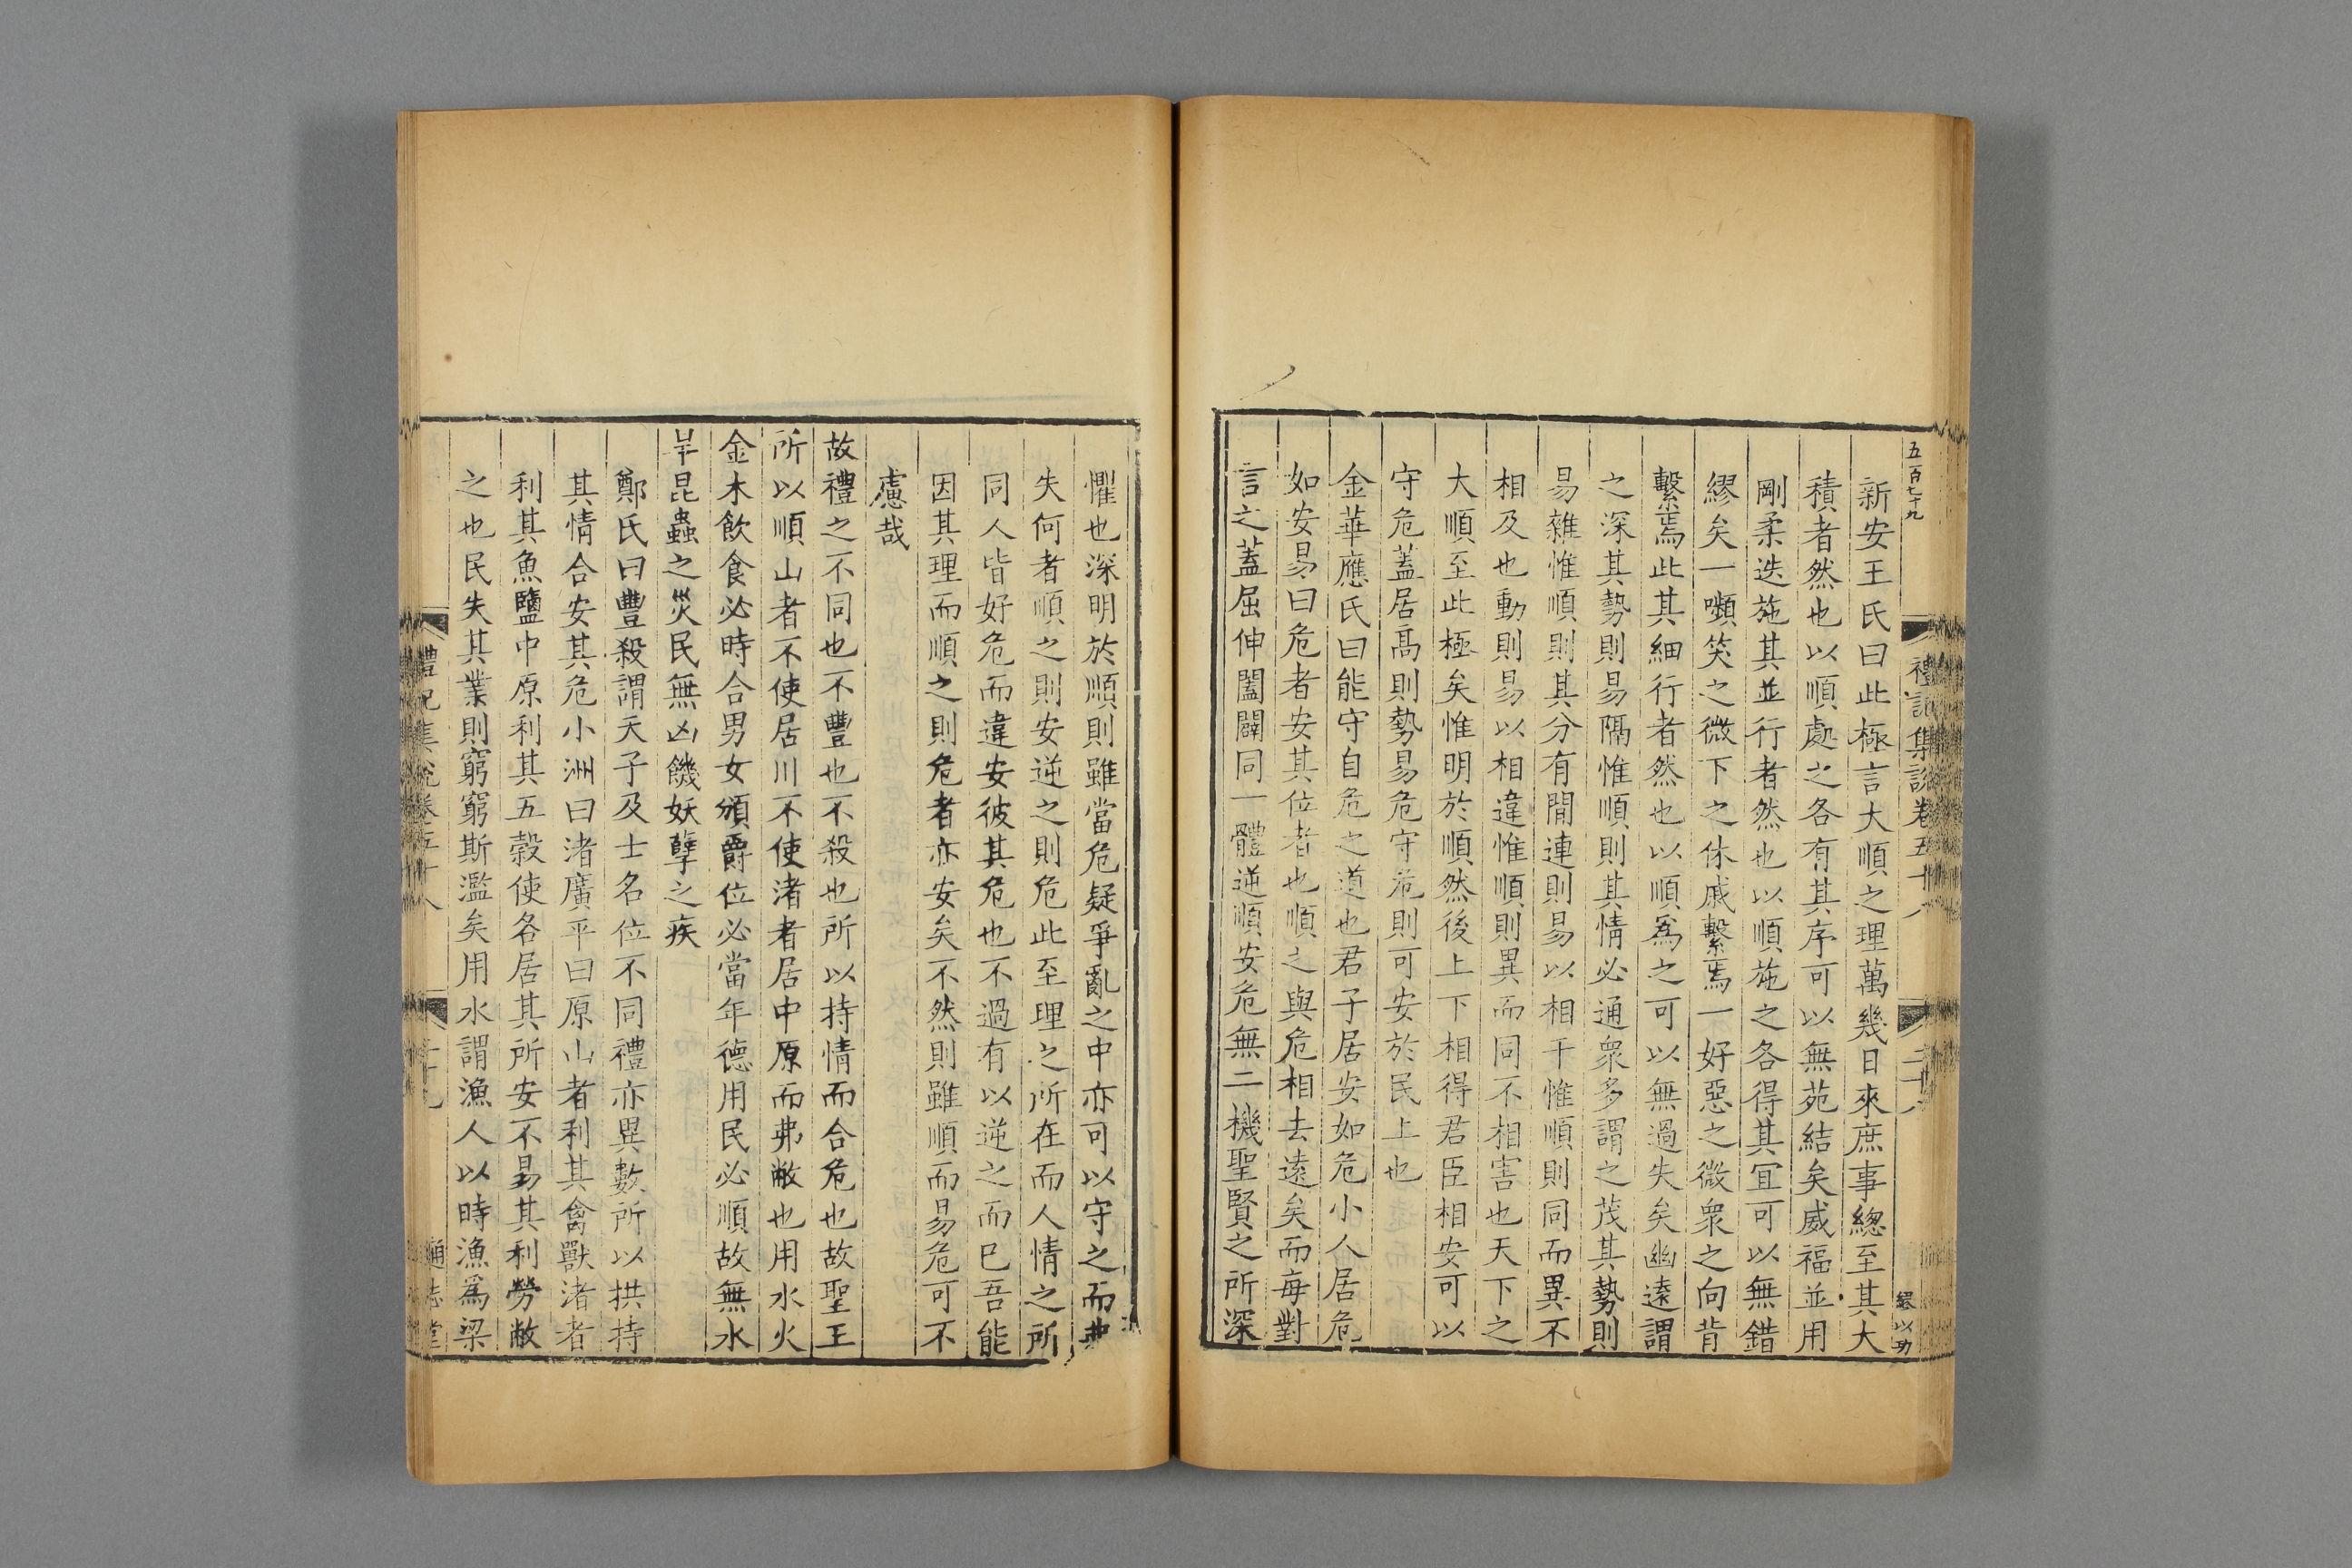 五百七十九
禮記集說卷五十八
二十八
繆以功
新安王氏曰此極言大順之理萬幾日來庶事總至其大
積者然也以順處之各有其序可以無苑結矣威福並用
剛柔迭施其並行者然也以順施之各得其宜可以無錯
繆矣一嚬笑之微下之休戚繫焉一好惡之微衆之向背
繫焉此其細行者然也以順爲之可以無過失矣幽遠謂
之深其勢則易隔惟順則其情必通衆多謂之茂其勢則
易雜惟順則其分有閒連則易以相干惟順則同而異不
相及也動則易以相違惟順則異而同不相害也天下之
大順至此極矣惟明於順然後上下相得君臣相安可以
守危蓋居高則勢易危守危則可安於民上也
金華應氏曰能守自危之道也君子居安如危小人居危
如安易曰危者安其位者也順之與危相去遠矣而每對
言之蓋屈伸闔闢同一體逆順安危無二機聖賢之所深
懼也深明於順則雖當危疑爭亂之中亦可以守之而弗
失何者順之則安逆之則危此至理之所在而人情之所
同人皆好危而違安彼其危也不過有以逆之而巳吾能
因其理而順之則危者亦安矣不然則雖順而易危可不
慮哉
故禮之不同也不豐也不殺也所以持情而合危也故聖王
所以順山者不使居川不使渚者居中原而弗敝也用水火
金木飲食必時合男女頒爵位必當年德用民必順故無水
旱昆蟲之災民無凶饑妖孽之疾
鄭氏曰豐殺謂天子及士名位不同禮亦異數所以拱持
其情合安其危小洲曰渚廣平曰原山者利其禽獸渚者
利其魚鹽中原利其五穀使各居其所安不易其利勞敝
之也民失其業則窮窮斯濫矣用水謂漁人以時漁爲梁
禮記集說卷五十八
二十九
通志堂